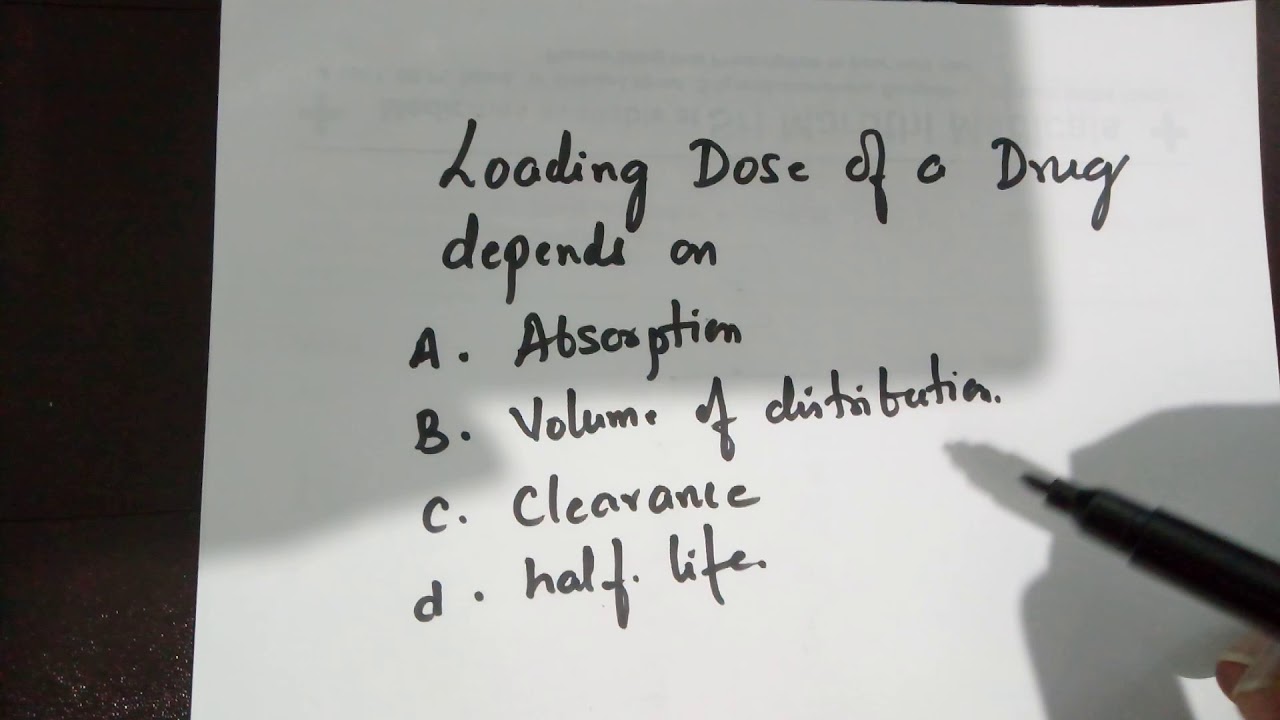 Loading Dose of a Drug
depends on
A. Absorption
B. Volume of distribution.
C. Clearance
d. half. life.